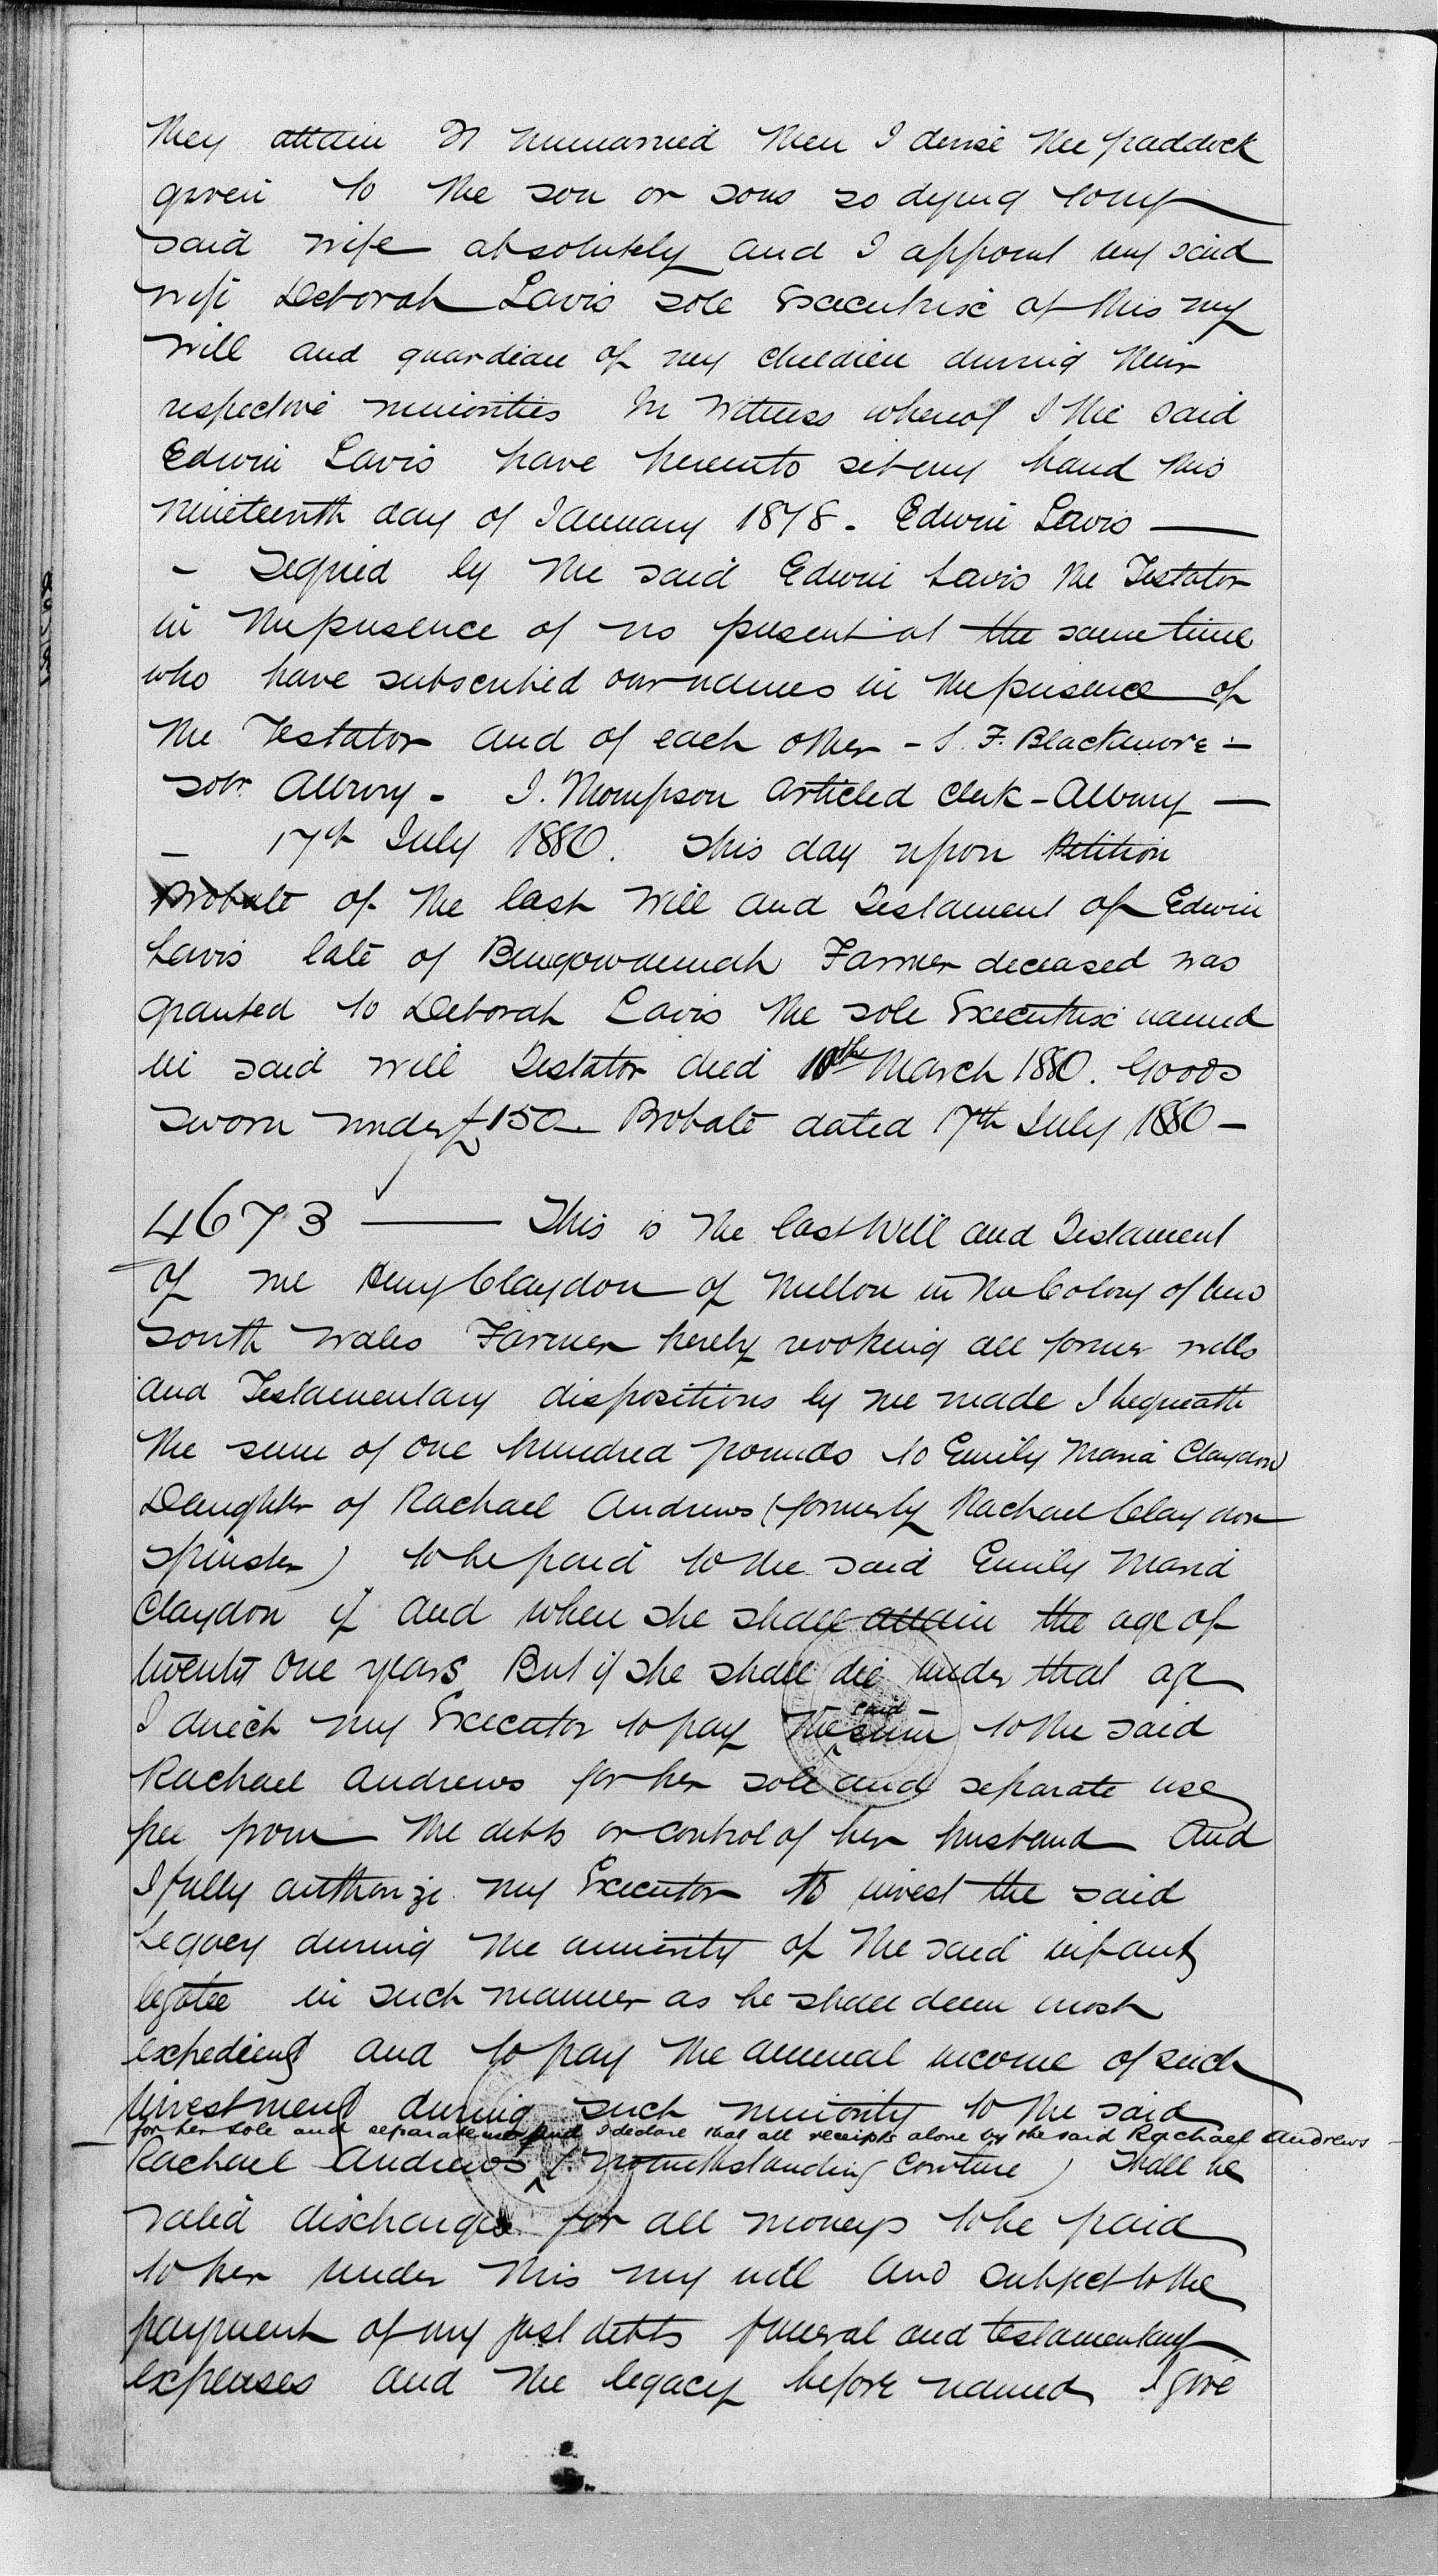 they attain 21 unmarried then I devise the paddock
given to the son or sons so dying to my
said wife absolutely and I appoint my said
wife Deborah Lavis sole Executrix of this my
will and guardian of my children during their
respective minorities In Witness whereof I the said
Edwin Lavis have hereunto set my hand this
nineteenth day of January 1878 - Edwin Lavis —
- Signed by the said Edwin Lavis the Testator
in the presence of us present at the same time
who have subscribed our names in the presence of
the Testator and of each other - S. F. Blackmore -
Solr. Albury - J. Thompson Articled Clerk - Albury —
- 17th July 1880. This day upon Petition
Probate of the last Will and Testament of Edwin
Lavis late of Bungowannah Farmer deceased was
granted to Deborah Lavis the sole Executrix named
in said will Testator died 10th March 1880. Goods
sworn under £150 - Probate dated 17th July 1880 -
4673 — This is the last Will and Testament
of me Henry Claydon of Milton in the Colony of New
South Wales Farmer hereby revoking all former wills
and Testamentary dispositions by me made I bequeath
the sum of one hundred pounds to Emily Maria Claydon
Daughter of Rachael Andrews (formerly Rachael Claydon
Spinster) to be paid to the said Emily Maria
Claydon if and when she shall attain the age of
twenty one years But if she shall die under that age
I direct my Executor to pay the said sum to the said
Rachael Andrews for her sole and separate use
free from the debts or control of her husband And
I fully authorize my Executor to invest the said
Legacy during the minority of the said infant
legatee in such manner as he shall deem most
expedient and to pay the annual income of such
investment during such minority to the said
for her sole and separate use And I declare that all receipts alone by the said Rachael Andrews
Rachael Andrews (notwithstanding Coverture) shall be
valid discharges for all moneys to be paid
to her under this my will And subject to the
payment of my just debts funeral and testamentary
expenses and the legacy before named I give